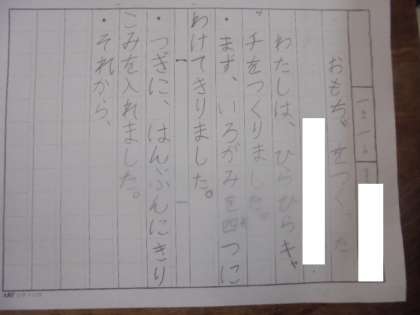 おもちゃをつくった
わたしは、ひらひらキャ
ッチをつくりました。
・まず、いろがみを四つに
わけてきりました。
・つぎに、はんぶんにきり
こみを入れました。
・それから、